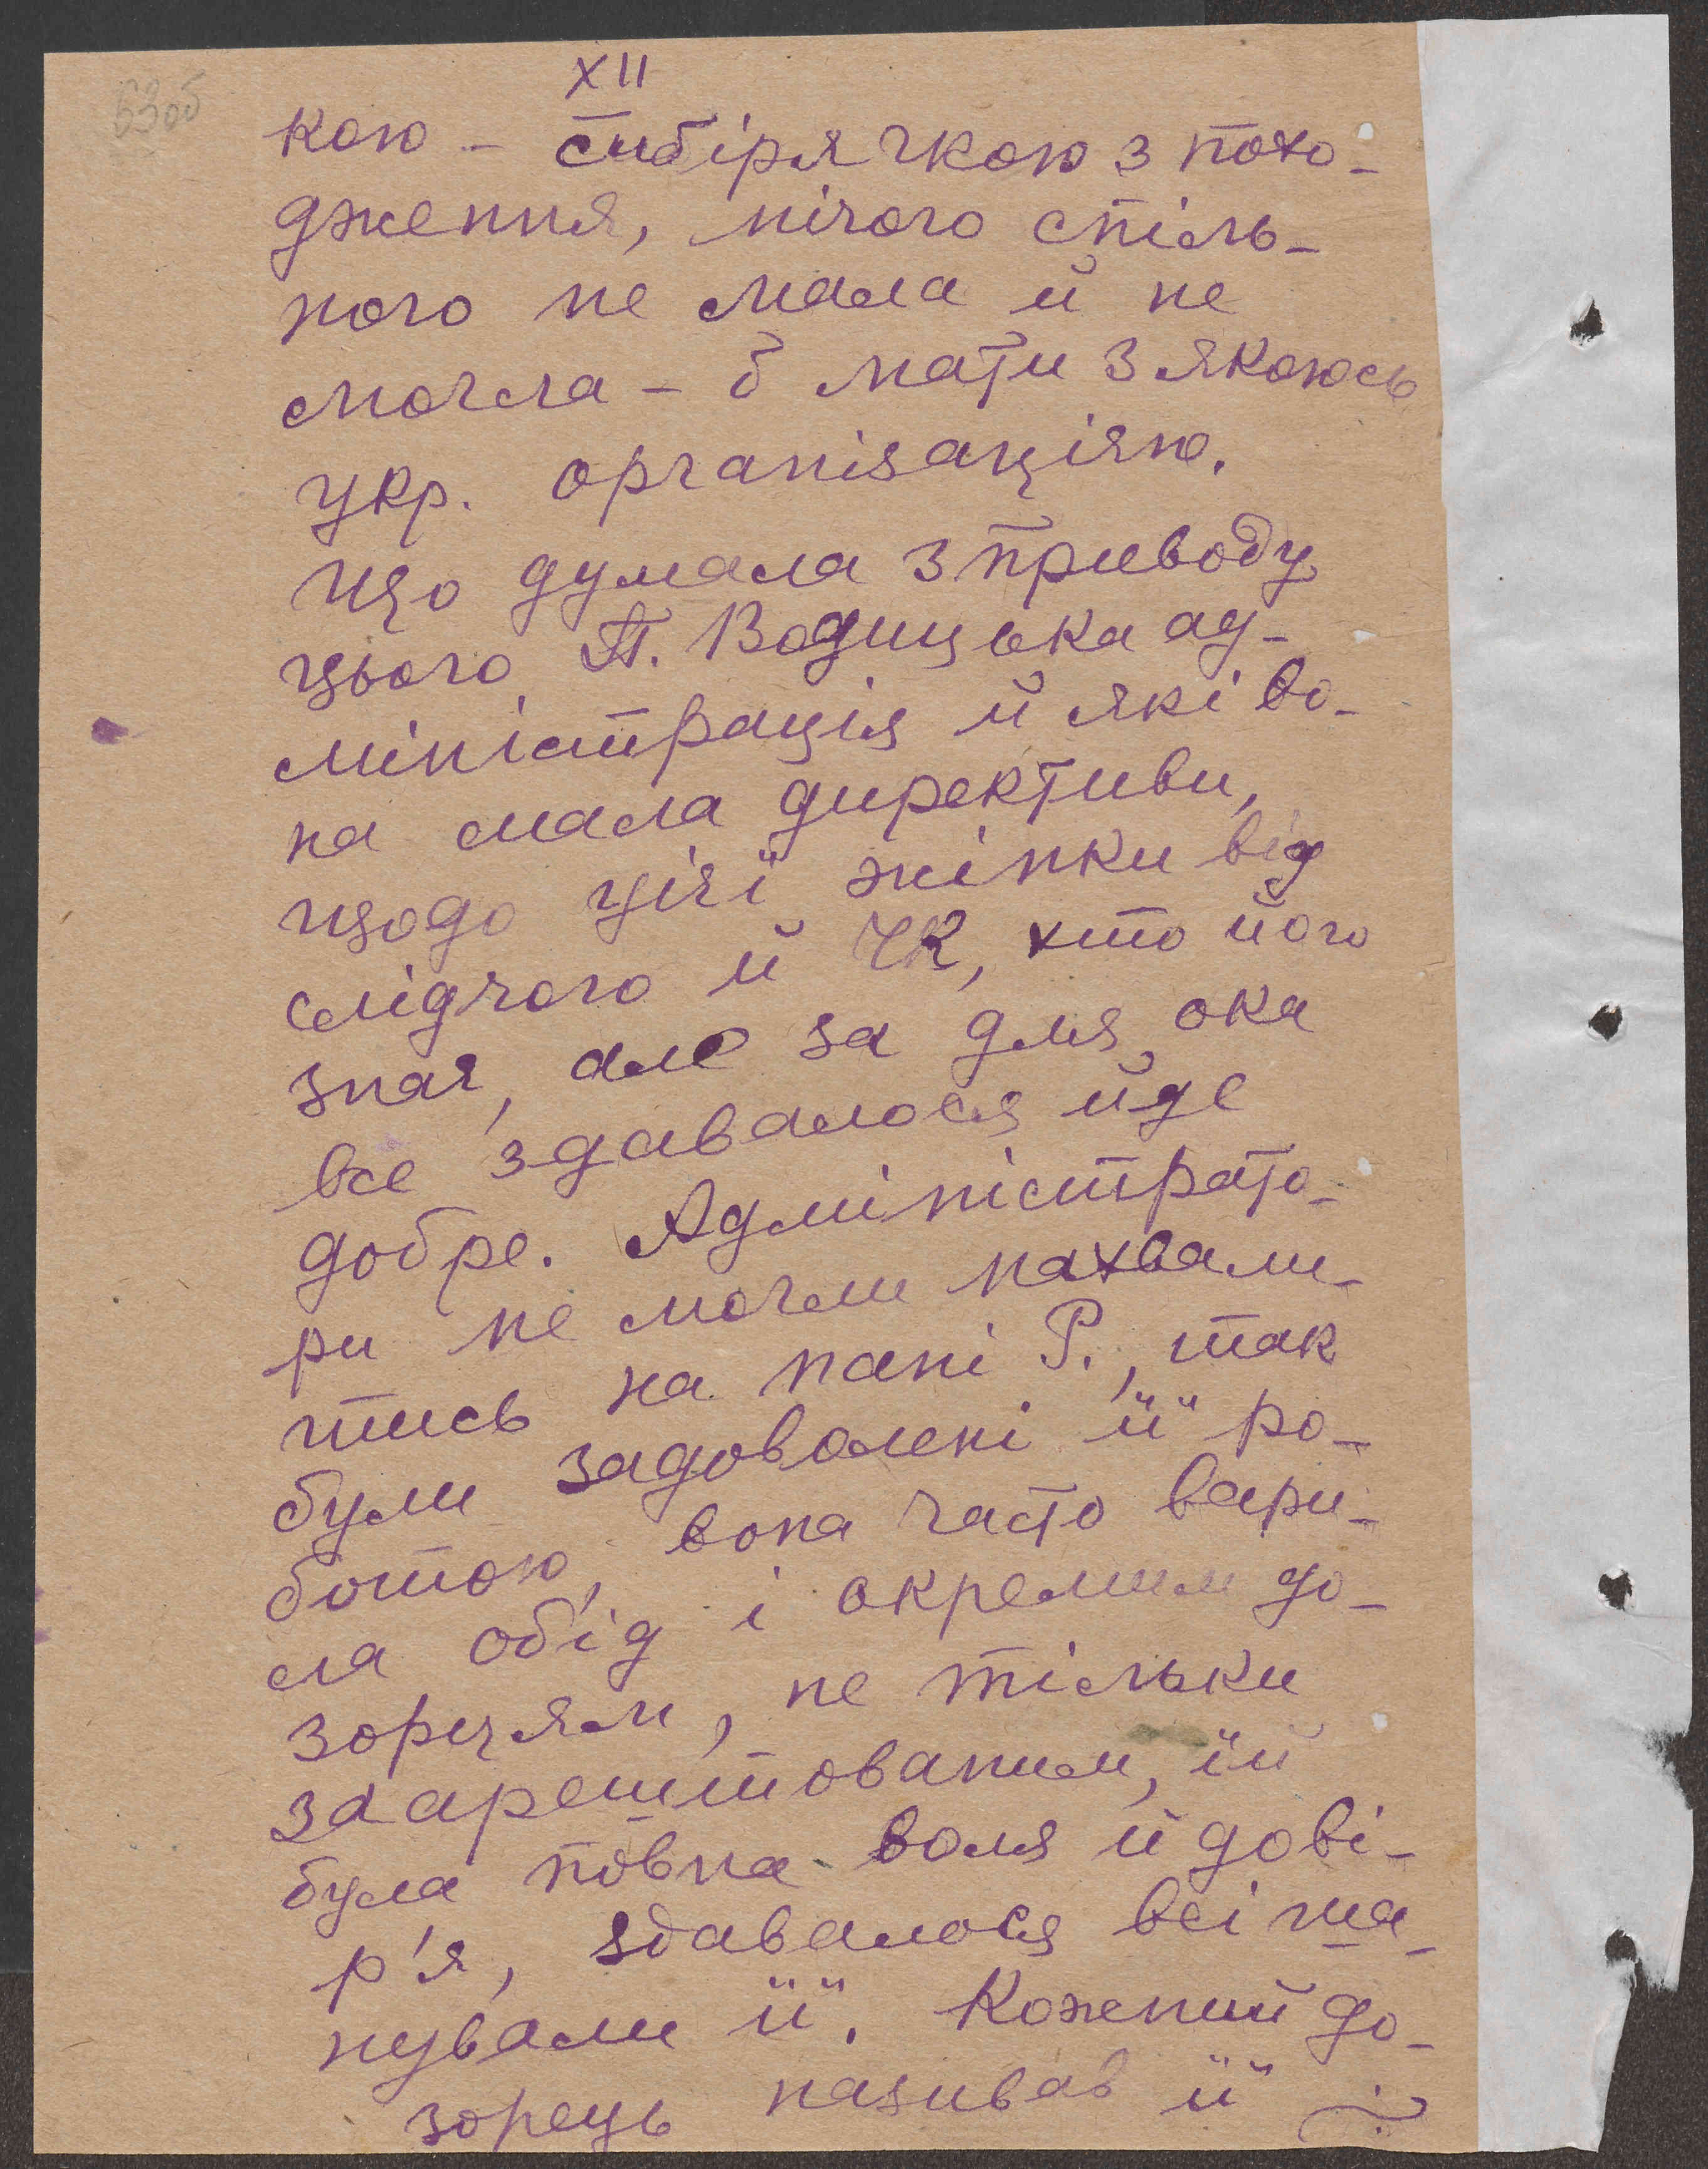 63об
XII
кою – сибірячкою з похо-
дження, нічого спіль-
ного не мала й не
могла – б мати з якоюсь
укр. організацією.
Що думала з приводу
цього П. Водицька ад-
міністрація й які во-
на мала директиви,
щодо цієї жінки від
слідчого й ЧК, хто його
знає, але за для ока
все здавалося йде
добре. Адміністрато-
ри не могли нахвали-
тись на пані Р., так
були задоволені її ро-
ботою, вона часто вари-
ла обід і окремим до-
зорцям, не тільки
заарештованим, їй
була повна воля й дові-
р'я, здавалося всі ша-
нували її. Кожений до-
зорець називав її